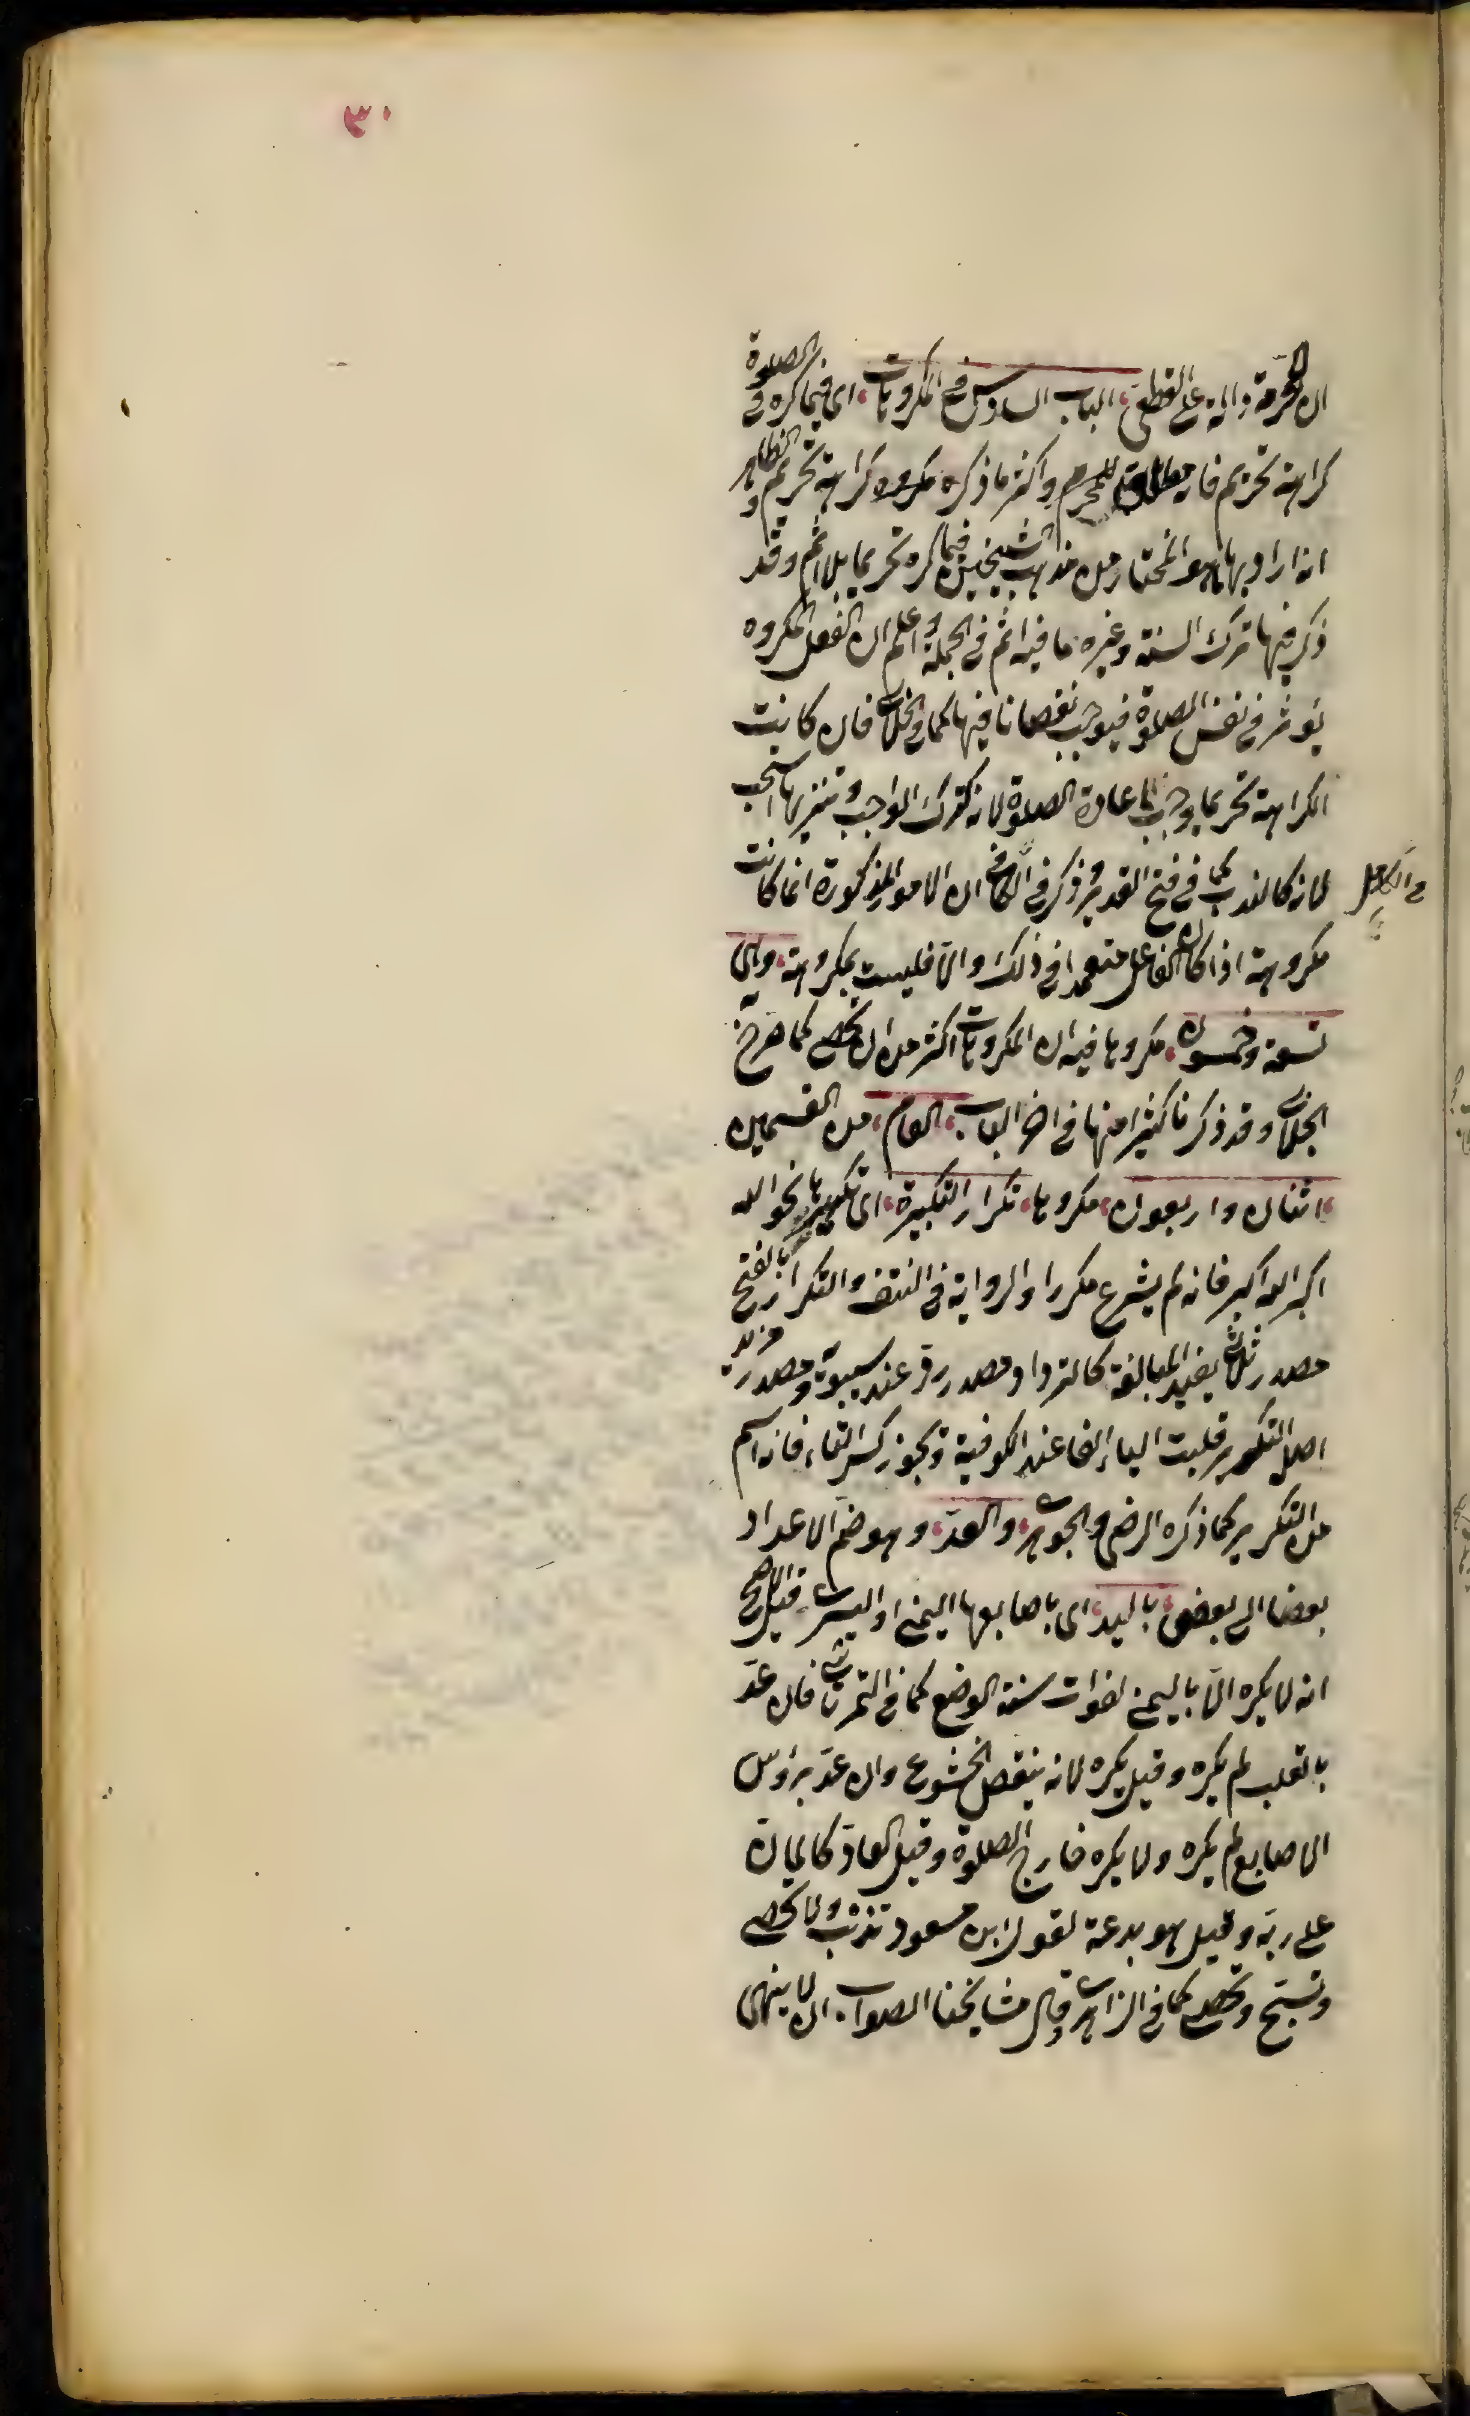 ٣٠
ان الحرمة دالة على القطعي الباب السادس في المكروهات اي فيما كره في الصلوة
كراهة تحريم فانه للمحرم واكثر ما ذكره مكروه كراهة تحريم والظاهر
انه اراد بها ما هو المختار من مذهب الشيخين فيما كره تحريما بلا اثم وقد
ذكر فيها ترك السنة وغيره ما فيه اثم في الجملة واعلم ان الفعل المكروه
يؤثر في نفس الصلوة فيوجب نقصانا فيها كما في الجلابي فان كانت
الكراهة تحريما وجب اعادة الصلوة لانه كترك الواجب وتنزيها استحب
لانه كالندب كما في فتح القدير وذكر في الكافي ان الامور المذكورة انما كانت
في الكامل
مكروهة اذا كان الفاعل متعمدا في ذلك والا فليست بمكروهة وهي
تسعة وخمسون مكروها فيه ان المكروهات اكثر من ان تحصى كما صرح في
الجلابي وقد ذكرنا كثيرا منها في اخر الباب العام من القسمين
اثنان واربعون مكروها تكرار التكبيرة اي تكريرها نحو الله
اكبر الله اكبر فانه لم يشرع مكررا والرواية في النتف والتكرار بالفتح
مصدر ثلاثي يفيد المبالغة كالترداد مصدر رد عند سيبويه ومصدر مزيد
اصله التكرير قلبت الياء الفا عند الكوفية ويجوز كسر التاء فانه اسم
من التكرير كما ذكره الرضي والجوهري والعد وهو ضم الاعداد
بعضا الى بعض باليد اي باصابعها اليمنى او اليسرى قيل الاصح
انه لا يكره الا باليمنى لفوات سنة الوضع كما في التمرتاشي فان عد
بالقلب لم يكره وقيل يكره لانه ينقص الخشوع وان عد برؤس
الاصابع لم يكره ولا يكره خارج الصلوة وقيل العاد كالمانّ
على ربه وقيل هو بدعة لقول ابن مسعود تذنب ولا تحصي
وتسبح وتحصي كما في الزاهدي وقال مشايخنا الصواب ان لا ينهى